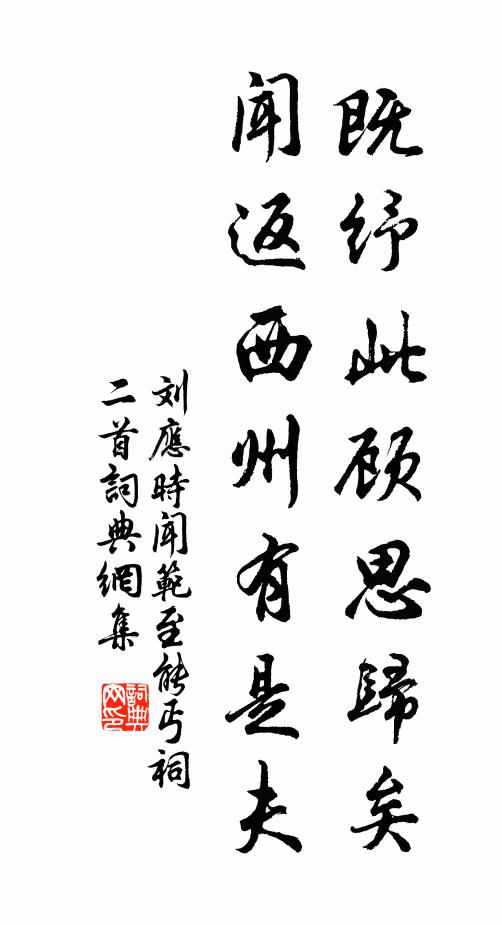 既纾此顾思歸矣
闻返西州有是夫
刘應時闻範至能丐祠
二首詞典網集
詞典网印